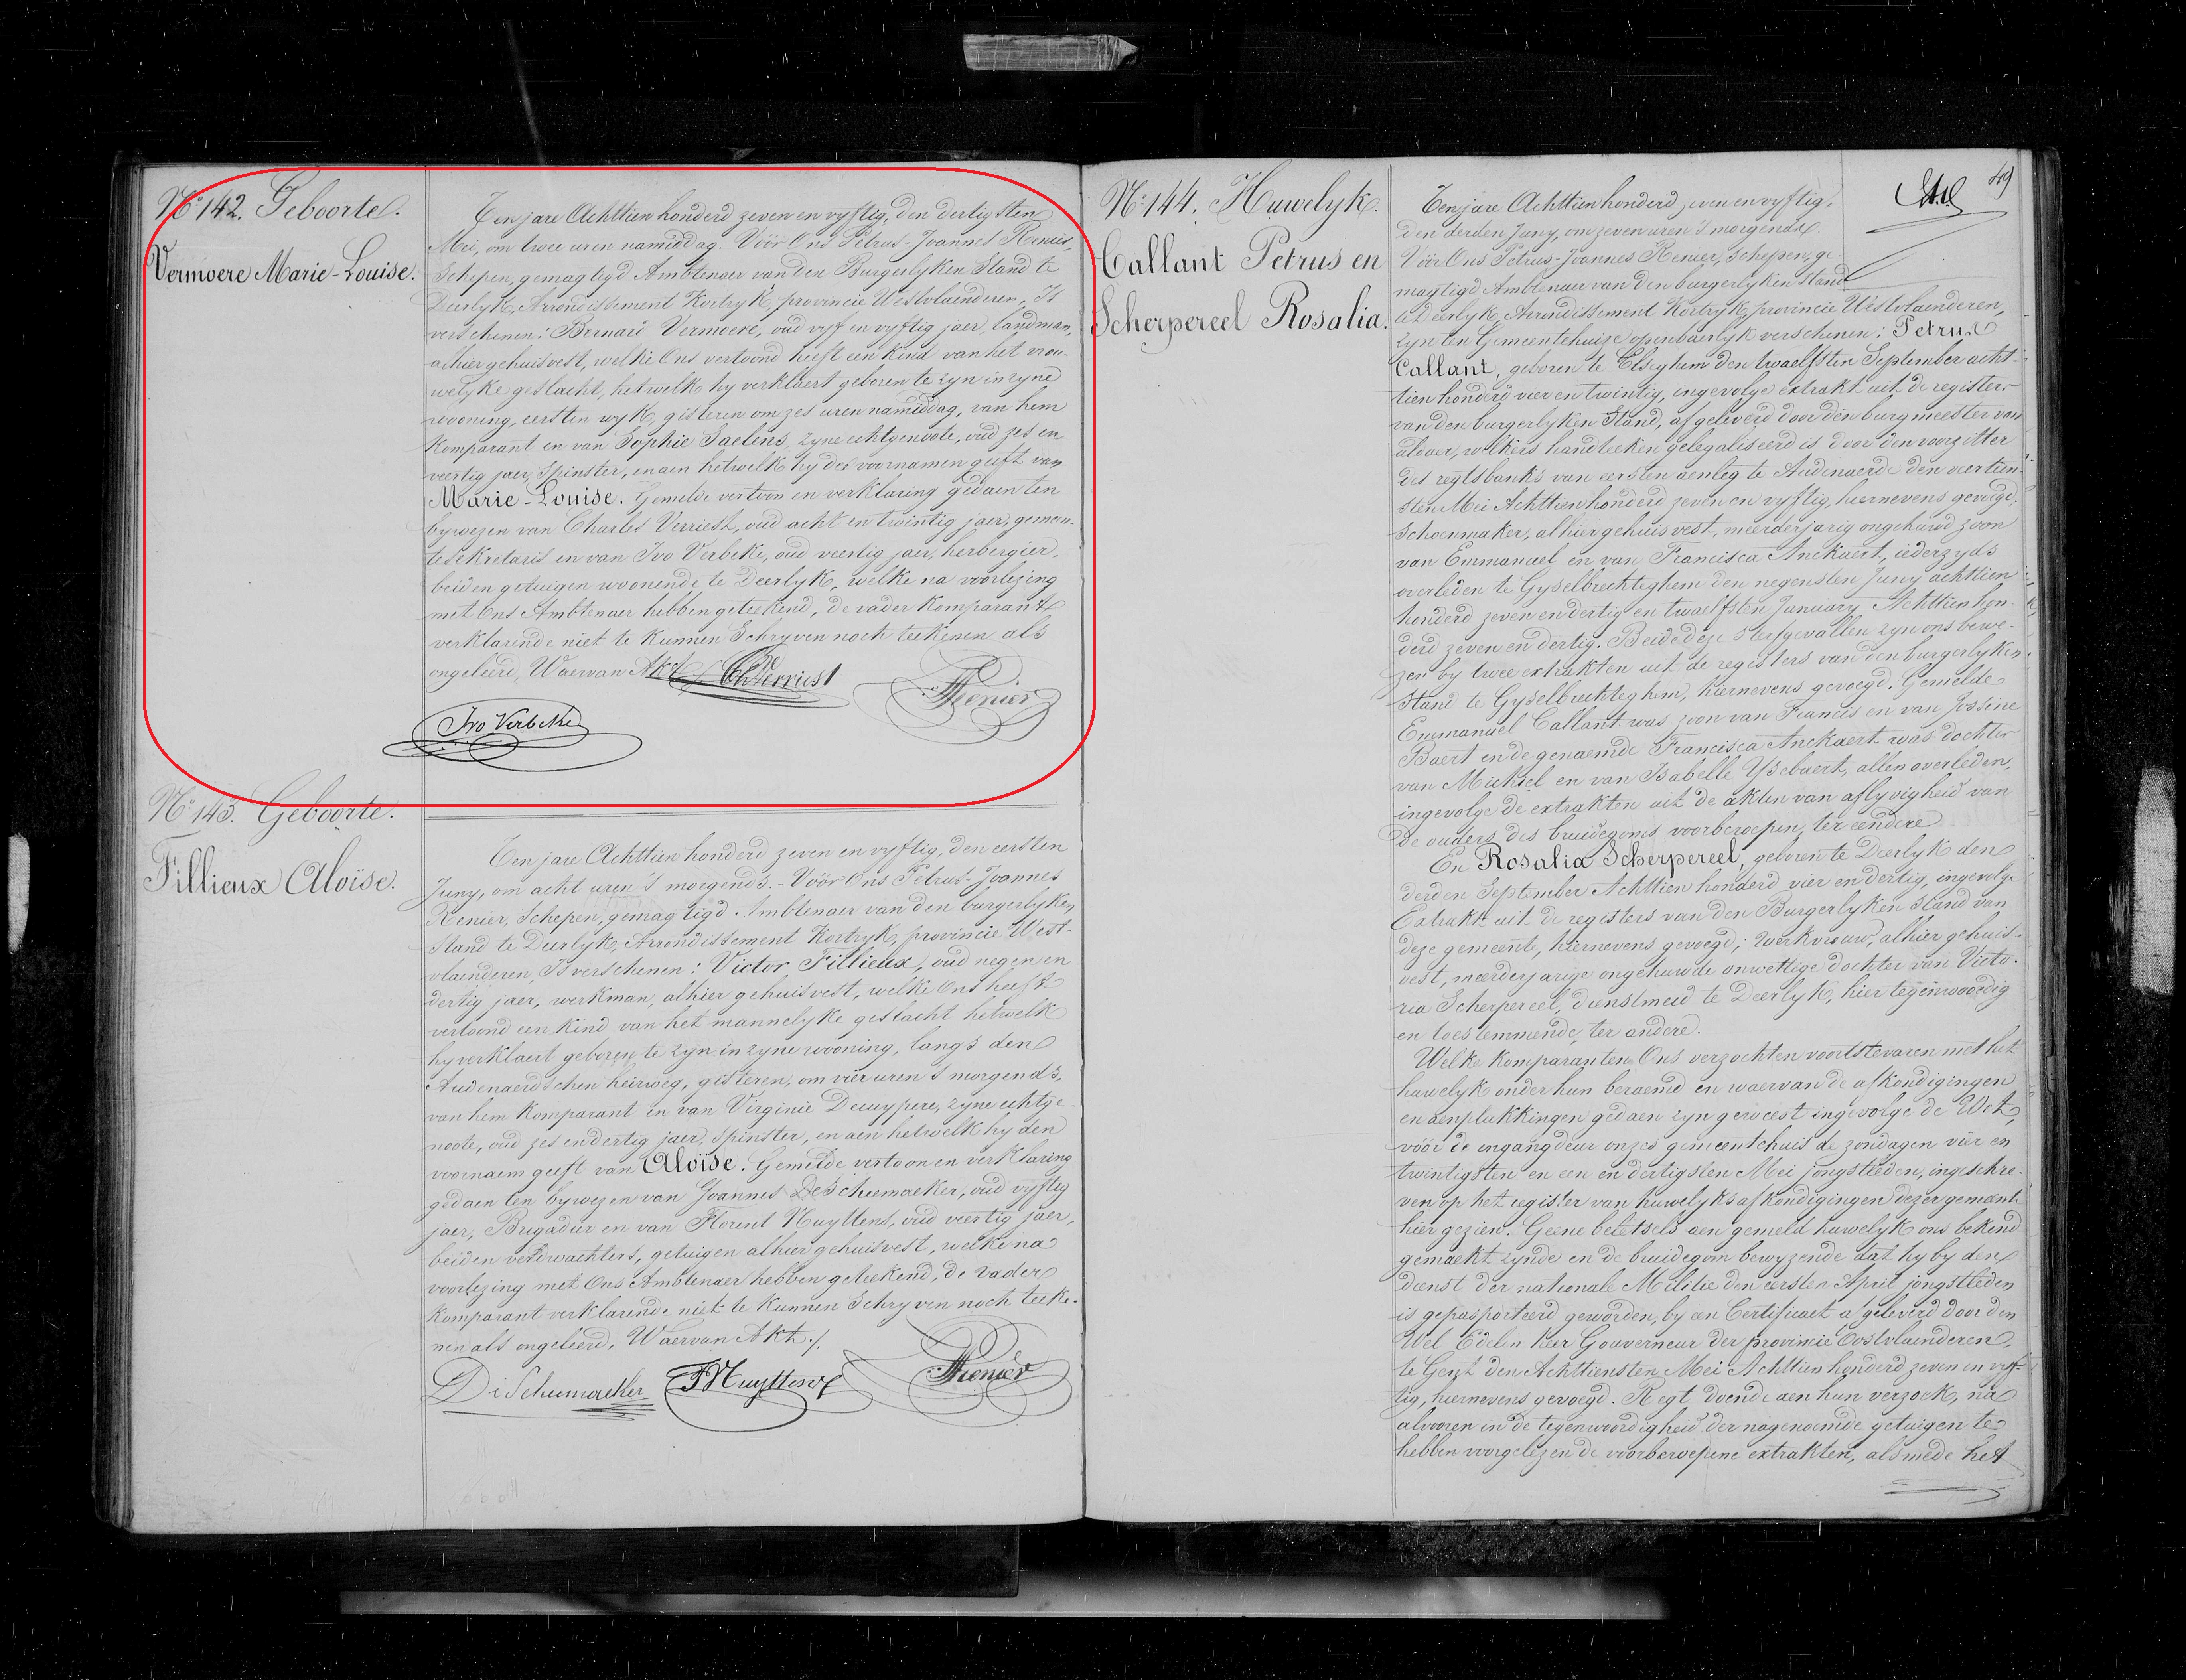 Nº 142. Geboorte.
Vermoere Marie-Louise.
Ten jare Achttien honderd zeven en vyftig, den dertigsten
Mei, om twee uren namiddag. Vóór Ons Petrus-Joannes Renier,
Schepen, gemagtigd Ambtenaer van den Burgerlyken Stand te
Deerlyk, Arrondissement Kortryk, provincie Westvlaenderen, Is
verschenen: Bernard Vermoere, oud vyf en vyftig jaer, landman,
alhier gehuisvest, welke Ons vertoond heeft een kind van het vrou-
welyke geslacht, hetwelk hy verklaert geboren te zyn in zyne
wooning, eersten wyk, gisteren om zes uren namiddag, van hem
komparant en van Sophie Saelens, zyne echtgenoote, oud zes en
veertig jaer, Spinster, en aen hetwelk hy de voornamen geeft van
Marie-Louise. Gemelde vertoon en verklaring gedaen ten
bywezen van Charles Verriest, oud acht en twintig jaer, gemeen-
te Sekretaris en van Ivo Verbeke, oud veertig jaer, herbergier,
beiden getuigen woonende te Deerlyk, welke na voorlezing
met Ons Ambtenaer hebben geteekend, de vader komparant
verklarende niet te kunnen Schryven noch teekenen als
ongeleerd, Waervan Akt
Ch Verriest
Renier
Ivo Verbeke
Nº 143. Geboorte.
Fillieux Aloïse.
Ten jare Achttien honderd zeven en vyftig, den eersten
Juny, om acht uren 's morgends. - Vóór Ons Petrus-Joannes
Renier, Schepen, gemagtigd Ambtenaer van den burgerlyken
Stand te Deerlyk, Arrondissement Kortryk, provincie West-
vlaenderen, Is verschenen: Victor Fillieux, oud negen en
dertig jaer, werkman, alhier gehuisvest, welke Ons heeft
vertoond een kind van het mannelyke geslacht hetwelk
hy verklaert geboren te zyn in zyne wooning, langs den
Audenaerdschen heirweg, gisteren, om vier uren 's morgends,
van hem komparant en van Virginie Decuypere, zyne echtge-
noote, oud zes en dertig jaer, Spinster, en aen hetwelk hy den
voornaem geeft van Aloïse. Gemelde vertoon en verklaring
gedaen ten bywezen van Joannes De Schuemaeker, oud vyftig
jaer, Brigadier en van Florent Nuyttens, oud veertig jaer,
beiden veldwachters, getuigen alhier gehuisvest, welke na
voorlezing met Ons Ambtenaer hebben geteekend, de vader
komparant verklarende niet te kunnen Schryven noch teeke-
nen als ongeleerd, Waervan Akt./.
De Schuemaeker
F Nuyttens
Renier
49
Nº 144. Huwelyk.
Callant Petrus en
Scherpereel Rosalia.
Ten jare Achttien honderd zeven en vyftig,
den derden Juny, om zeven uren 's morgends.
Vóór Ons Petrus-Joannes Renier, Schepen, ge-
magtigd Ambtenaer van den burgerlyken Stand
te Deerlyk, Arrondissement Kortryk, provincie Westvlaenderen,
zyn ten Gemeentehuize openbaerlyk verschenen: Petrus
Callant, geboren te Elseghem den twaelfsten September acht-
tien honderd vier en twintig, ingevolge extrakt uit de registers
van den burgerlyken Stand, afgeleverd door den burgmeester van
aldaer, welkers handteeken gelegaliseerd is door den voorzitter
des regtsbanks van eersten aenleg te Audenaerde den veertien-
sten Mei Achttien honderd zeven en vyftig, hiernevens gevoegd,
Schoenmaker, alhier gehuisvest, meerderjarig ongehuwd zoon
van Emmanuel en van Francisca Anckaert, iederzyds
overleden te Gyselbrechteghem den negensten Juny achttien
honderd zeven en dertig en twaelfsten January Achttien hon-
derd zeven en dertig. Beide deze Sterfgevallen zyn ons bewe-
zen by twee extrakten uit de registers van den burgerlyken
Stand te Gyselbrechteghem, hiernevens gevoegd. Gemelde
Emmanuel Callant was zoon van Francis en van Jossine
Baert en de genaemde Francisca Anckaert was dochter
van Michiel en van Isabelle Ysebaert, allen overleden,
ingevolge de extrakten uit de akten van aflyvigheid van
de ouders des bruidegoms voorberoepen, ter eendere
En Rosalia Scherpereel, geboren te Deerlyk den
derden September Achttien honderd vier en dertig, ingevolge
Extrakt uit de registers van den Burgerlyken Stand van
deze gemeente, hiernevens gevoegd; werkvrouw, alhier gehuis-
vest, meerderjarige ongehuwde onwettige dochter van Victo-
ria Scherpereel, dienstmeid te Deerlyk, hier tegenwoordig
en toestemmende, ter andere.
Welke komparanten Ons verzochten voortstevaren met het
huwelyk onder hun beraemd en waervan de afkondigingen
en aenplakkingen gedaen zyn geweest ingevolge de Wet,
vóór de ingangdeur onzes gemeentehuis de zondagen vier en
twintigsten en een en dertigsten Mei jongstleden, ingeschre-
ven op het register van huwelyksafkondigingen dezer gemeente
hier gezien. Geene beletsels aen gemeld huwelyk ons bekend
gemaekt zynde en de bruidegom bewyzende dat hy by den
dienst der nationale Militie den eersten April jongstleden
is gepasporteerd geworden, by een Certificaet afgeleverd door den
Wel Edelen heer Gouverneur der provincie Oostvlaenderen,
te Gent den Achttiensten Mei Achttien honderd zeven en vyf-
tig, hiernevens gevoegd. Regt doende aen hun verzoek, na
alvooren in de tegenwoordigheid der nagenoemde getuigen te
hebben voorgelezen de voorberoepene extrakten, alsmede het